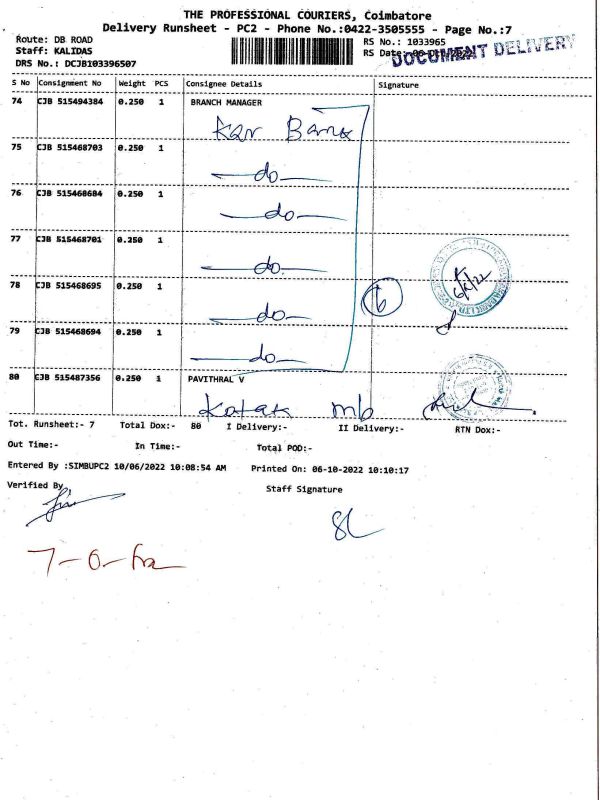 THE PROFESSIONAL COURIERS, Coimbatore
Delivery Runsheet - PC2 - Phone No.:0422-3505555 - Page No.:7
Route: DB ROAD
RS No.: 1033965
Staff: KALIDAS
RS Date:
DOCUMENT DELIVERY
DRS No.: DCJB103396507
S No Consignment No Weight PCS Consignee Details Signature
74 CJB 515494384 0.250 1 BRANCH MANAGER
Kar Bank
75 CJB 515468703 0.250 1
—do—
76 CJB 515468684 0.250 1
—do—
77 CJB 515468701 0.250 1
—do—
78 CJB 515468695 0.250 1
—do—
6
79 CJB 515468694 0.250 1
—do—
80 CJB 515487356 0.250 1 PAVITHRAL V
Kotak mb
Tot. Runsheet:- 7 Total Dox:- 80 I Delivery:- II Delivery:- RTN Dox:-
Out Time:- In Time:- Total POD:-
Entered By :SIMBUPC2 10/06/2022 10:08:54 AM Printed On: 06-10-2022 10:10:17
Verified By
Staff Signature